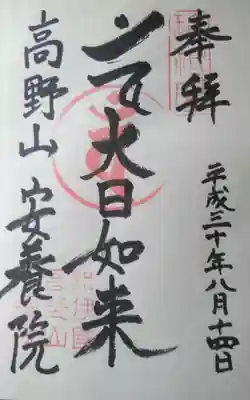 奉拝
平成三十年八月十四日
大日如来
高野山 安養院